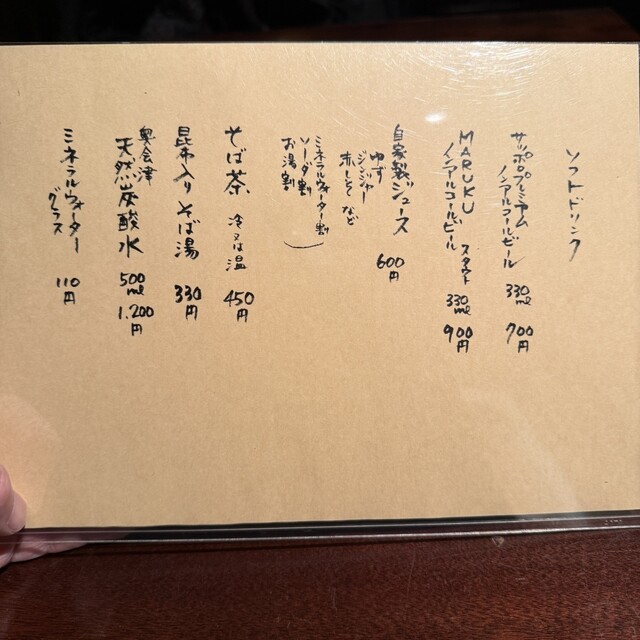 ソフトドリンク
サッポロプレミアム
ノンアルコールビール 330ml 700円
MARUKU スタウト
ノンアルコールビール 330ml 900円
自家製ジュース 600円
ゆず
ジンジャー
赤しそ など
ミネラルウォーター割
ソーダ割
お湯割
そば茶 冷又は温 450円
昆布入りそば湯 330円
奥会津
天然炭酸水 500ml 1,200円
ミネラルウォーター
グラス 110円